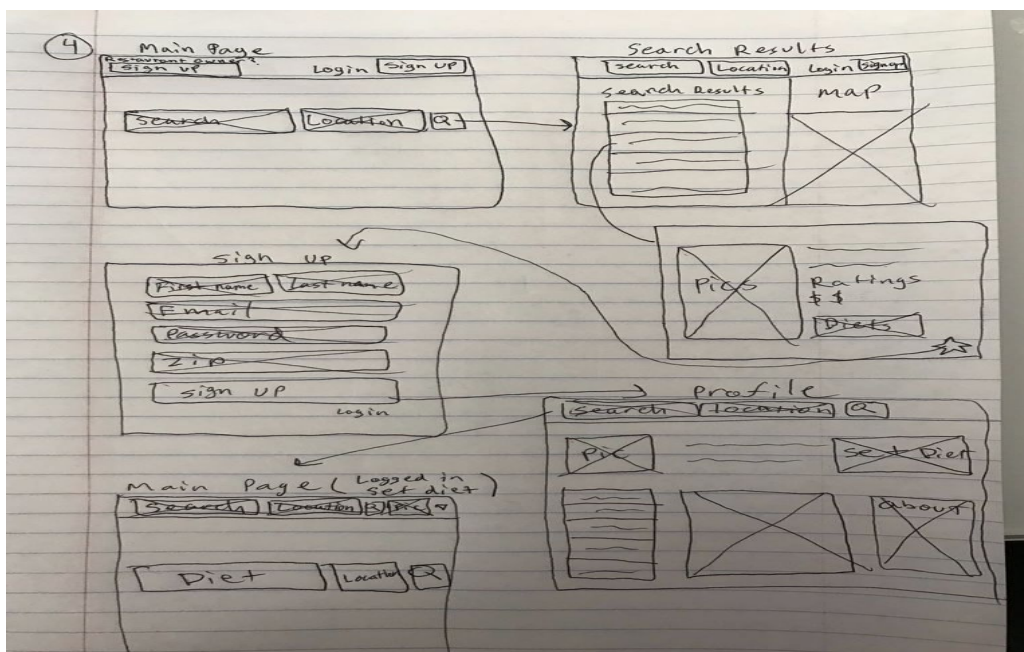 4
Main Page
Restaurant owner?
Sign up
Login Sign UP
Search Location Q
Search Results
Search Location Login Signup
Search Results
Map
Pics
Ratings
$ $
Diets
Sign UP
First name Last name
Email
Password
Zip
Sign UP
Login
Profile
Search Location Q
Pic
Set Diet
About
Main Page (Logged in
set diet)
Search Location Q Pic
Diet Location Q